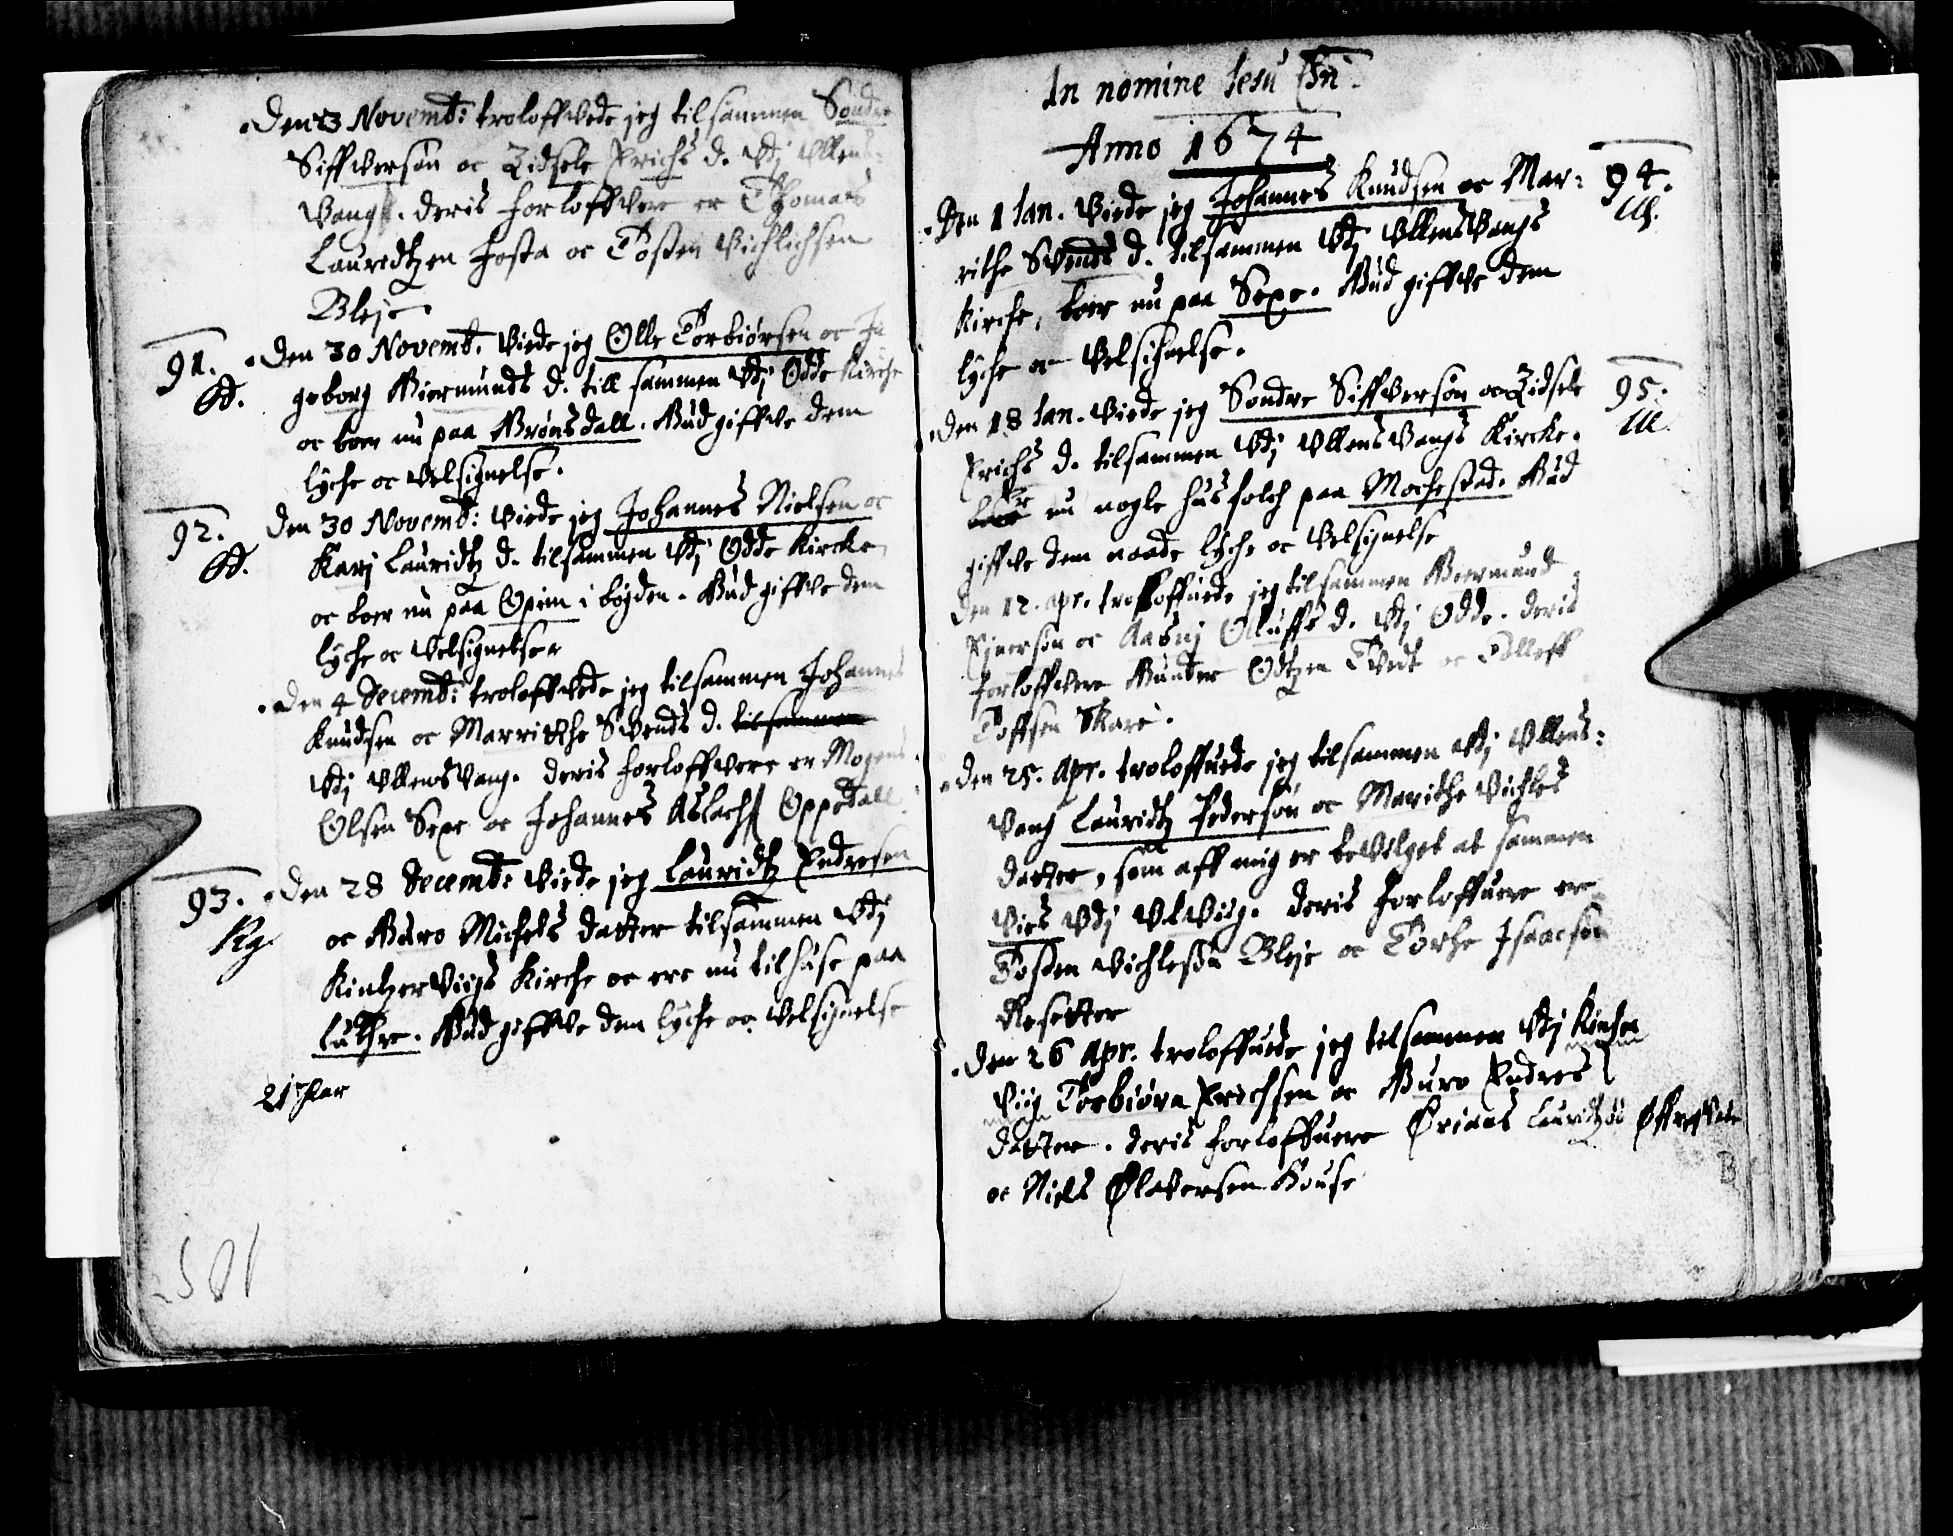 Den 23 Novemb: troloffvede jeg tilsammen Sondre
Siffversøn oc Zidsele Erichs d. vdj Ullens-
vangs. deris forloffvere er Thomas
Lauridtzen Josta oc Tosten Vichlichsen
Bleje.
91. Den 30 Novemb. Viede jeg Olle Torbiørsen oc In
Od. geborg Giermunds d. till sammen vdj Odde Kirche
oc boer nu paa Brønsdall. Gud giffve dem
lyche oc velsignelse.
92. Den 30 Novemb: Viede jeg Johannes Nielsen oc
Od. Karj Lauridtz d. tilsammen vdj Odde Kircke
oc boer nu paa Opim i bøgden. Gud giffve dem
lyche oc velsignelse
Den 4 Decemb: troloffvede jeg tilsammen Johannes
Knudsen oc Marrithe Svends d. tilsammen
vdj Ullensvang. deris forloffvere er Mogens
Olsen Sexe oc Johannes Aslachs Oppedall
93. Den 28 Decemb: Viede jeg Lauridtz Endresen
Kg. oc Guro Michels datter tilsammen vdj
Kintzervigs Kirche oc ere nu tilhuse paa
Luthre. Gud giffve dem lyche oc velsignelse
21 Par
In nomine Jesu Chri.
Anno 1674
Den 1 Jan. Viede jeg Johannes Knudsen oc Mar- 94.
rithe Svends d. tilsammen vdj Ullensvangs Ul.
Kirche, boer nu paa Sexe. Gud giffve dem
lyche oc velsignelse.
Den 18 Jan. Viede jeg Sondre Siffversøn oc Zidsele 95.
Erichs d. tilsammen vdj Ullensvangs Kircke. Ul.
Er nu nogle husfolch paa Mochestad. Gud
giffve dem naade lyche oc velsignelse
Den 12. apr. troloffuede jeg tilsammen Giermund
Ejnersøn oc Aasnj Oluffs d. vdj Odde. deris
forloffvere Gunder Odtzen Tvedt oc Tolleff
Toffsen Skare.
Den 25. Apr. troloffuede jeg tilsammen vdj Ullens-
vang Lauridtz Pedersøn oc Marithe Vichles
datter, som aff mig er bevilget at sammen
vies vdj Ulvig. deris forloffuere er
Tosten Vichlesøn Bleje oc Torche Isaacsen
Resetter
Den 26 Apr. troloffuede jeg tilsammen vdj Kinser
viig Torbiørn Erichsen oc Guro Endres
datter. deris forloffuere Ørians
oc Niels Olversen House